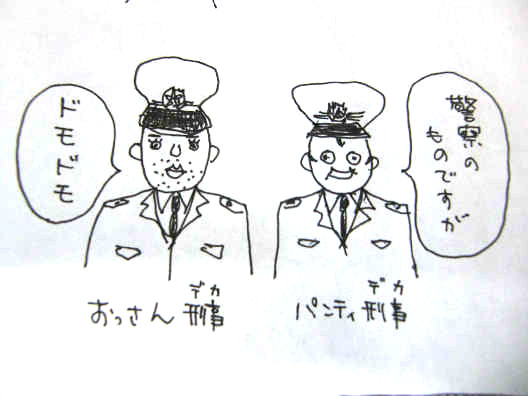 警察の
ものですが
ドモドモ
デカ
パンティ刑事
デカ
おっさん刑事